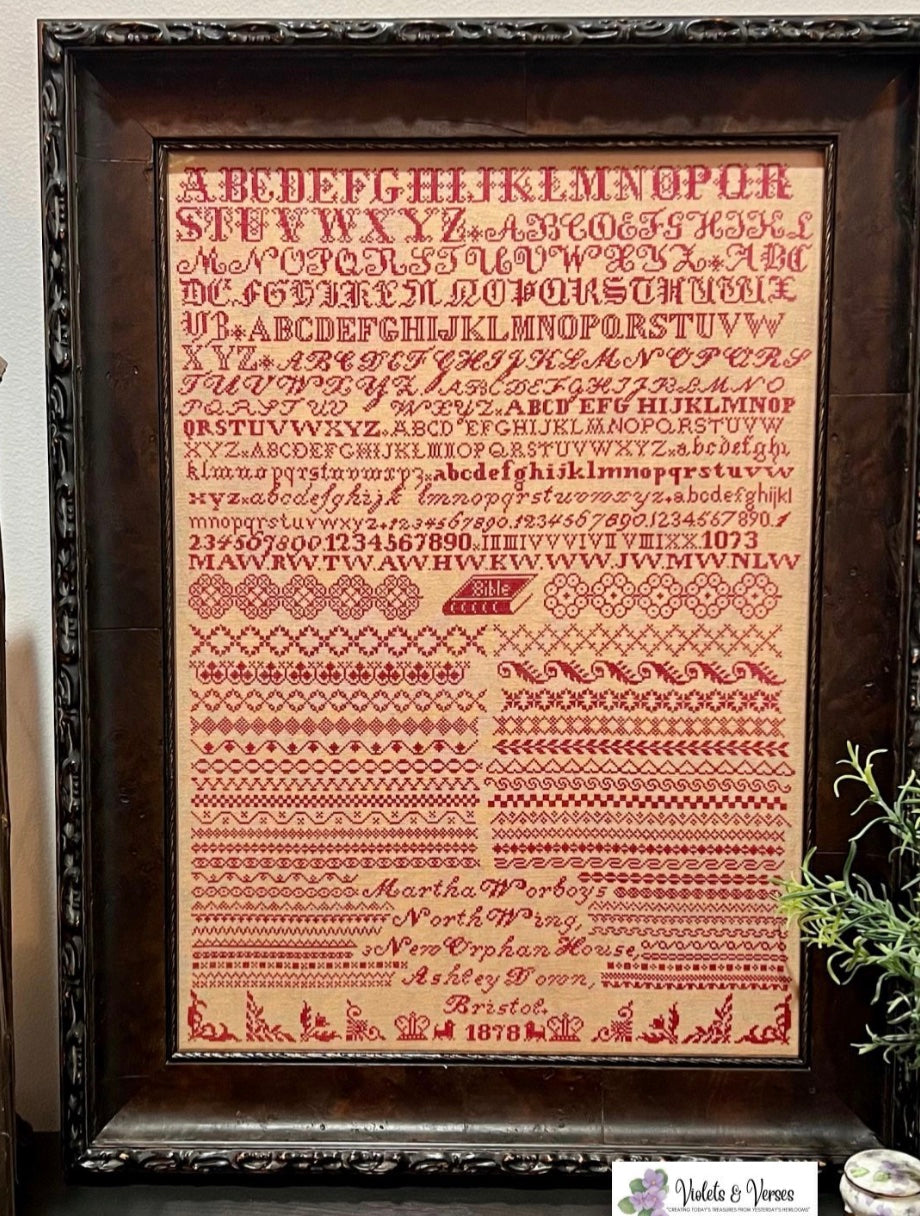 ABCDEFGHIJKLMNOPQR
STUVWXYZ*ABCDEFGHIJKL
MNOPQRSTUVWXYZ*ABC
DEFGHIJKLMNOPQRSTUVWX
YZ*ABCDEFGHIJKLMNOPQRSTUVW
XYZ*ABCDEFGHIJKLMNOPQRS
TUVWXYZ ABCDEFGHIJKLMNO
PQRSTUV WXYZ*ABCD EFG HIJKLMNOP
QRSTUVWXYZ*ABCD EFGHIJKLMNOPQRSTUVW
XYZ*ABCDEFGHIJKLMNOPQRSTUVWXYZ*abcdefghi
klmnopqrstuvwxyz*abcdefghijklmnopqrstuvw
xyz*abcdefghijk lmnopqrstuvwxyz*abcdefghijkl
mnopqrstuvwxyz*1234567890.1234567890.1234567890.1
234567890.1234567890*IIIIIIIVVVIVIIVIIIIXX.1073
MAW.RW.TW.AW.HW.KW.WW.JW.MW.NLW
Bible
Martha Worboys
North Wing,
3 New Orphan House,
Ashley Down,
Bristol.
1878
Violets & Verses
"CREATING TODAY'S TREASURES FROM YESTERDAY'S HEIRLOOMS"